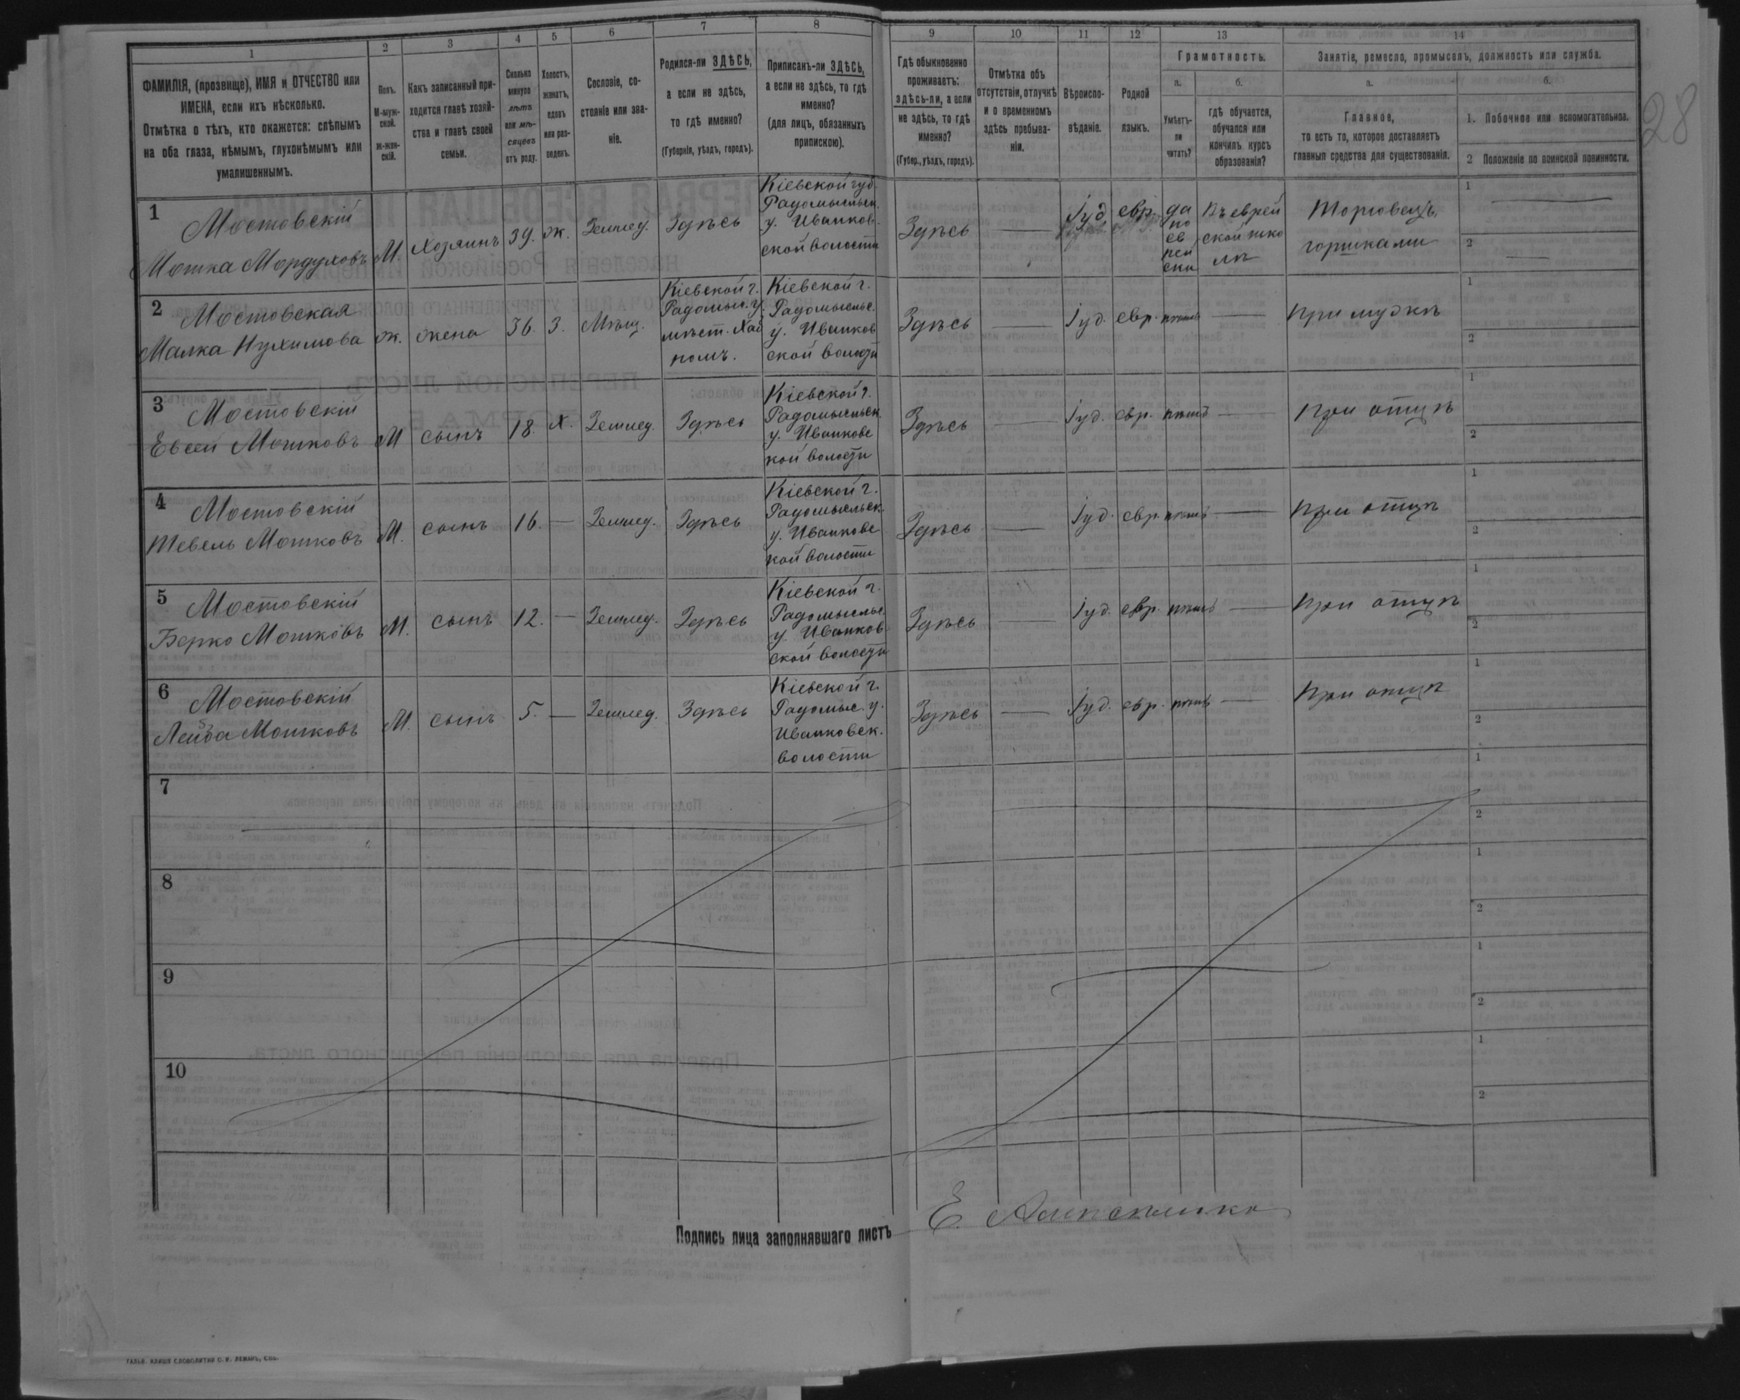 1 2 3 4 5 6 7 8 9 10 11 12 13 14
ФАМИЛІЯ, (прозвище), ИМЯ и ОТЧЕСТВО или
ИМЕНА, если ихъ нѣсколько.
Отмѣтка о тѣхъ, кто окажется: слѣпымъ
на оба глаза, нѣмымъ, глухонѣмымъ или
умалишеннымъ.
Полъ.
М-муж-
ской.
Ж-жен-
скій.
Какъ записанный при-
ходится главѣ хозяй-
ства и главѣ своей
семьи.
Сколько
минуло
лѣтъ
или мѣ-
сяцевъ
отъ роду.
Холостъ,
женатъ,
вдовъ
или раз-
веденъ.
Сословіе, со-
стояніе или зва-
ніе.
Родился-ли ЗДѢСЬ,
а если не здѣсь,
то гдѣ именно?
(Губернія, уѣздъ, городъ).
Приписанъ-ли ЗДѢСЬ,
а если не здѣсь, то гдѣ
именно?
(для лицъ, обязанныхъ
припискою).
Гдѣ обыкновенно
проживаетъ:
здѣсь-ли, а если
не здѣсь, то гдѣ
именно?
(Губер., уѣздъ, городъ).
Отмѣтка объ
отсутствіи, отлучкѣ
и о временномъ
здѣсь пребыва-
ніи.
Вѣроиспо-
вѣданіе.
Родной
языкъ.
Грамотность.
а.
Умѣетъ-
ли
читать?
б.
гдѣ обучается,
обучался или
кончилъ курсъ
образованія?
Занятіе, ремесло, промыселъ, должность или служба.
а.
Главное,
то есть то, которое доставляетъ
главныя средства для существованія.
б.
1. Побочное или вспомогательное.
2 Положеніе по воинской повинности.
28
1
Мостовскій
Мошка Мордуховъ
М. Хозяинъ 39. ж. Землед. Здѣсь
Кіевской губ.
Радомысльск.
у. Иванков-
ской волости
Здѣсь — Іуд. евр.
да
по
ев
рей
ски
Въ еврей
ской шко
лѣ
Торговецъ
горшками
1 —
2 —
2
Мостовская
Малка Нухимова
ж. жена 36. З. Мѣщ.
Кіевской г.
Радомыс. у.
мѣст. Хаб
номъ.
Кіевской г.
Радомысльс.
у. Иванков
ской волости
Здѣсь — Іуд. евр. нѣтъ — При мужѣ
1
2
3
Мостовскій
Евсей Мошковъ
М сынъ 18. х. Землед. Здѣсь
Кіевской г.
Радомысльск.
у. Иванковс
кой волости
Здѣсь — Іуд. евр. нѣтъ — При отцѣ
1
2
4
Мостовскій
Тевель Мошковъ
М. сынъ 16. — Землед. Здѣсь
Кіевской г.
Радомысльск.
у. Иванковс
кой волости
Здѣсь — Іуд. евр. нѣтъ — При отцѣ
1
2
5
Мостовскій
Берко Мошковъ
М. сынъ 12. — Землед. Здѣсь
Кіевской г.
Радомысльс.
у. Иванков-
ской волости
Здѣсь — Іуд. евр. нѣтъ — При отцѣ
1
2
6
Мостовскій
Лейба Мошковъ
М. сынъ 5. — Землед. Здѣсь
Кіевской г.
Радомыс. у.
Иванковск.
волости
Здѣсь — Іуд. евр. нѣтъ — При отцѣ
1
2
7
1
2
8
1
2
9
1
2
10
1
2
Подпись лица заполнявшаго листъ Е.